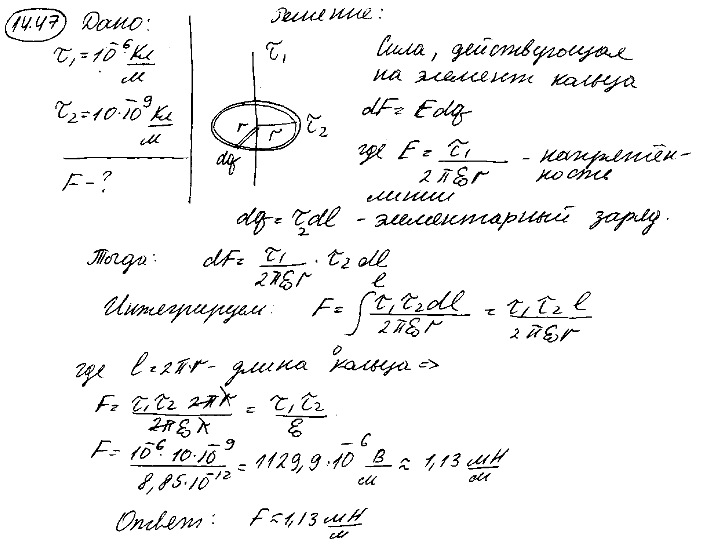 14.47 Дано: Решение:
τ₁ = 10⁻⁶ Кл/м
τ₂ = 10·10⁻⁹ Кл/м
F - ?
τ₁
r r τ₂
dq
Сила, действующая
на элемент кольца
dF = E dq
где E = τ₁/(2πε₀r) - напряжён-
ности
линии
dq = τ₂dl - элементарный заряд.
Тогда: dF = τ₁/(2πε₀r) · τ₂ dl
Интегрируем: F = ∫₀ˡ τ₁τ₂dl/(2πε₀r) = τ₁τ₂ l/(2πε₀r)
где l = 2πr - длина кольца ⇒
F = τ₁τ₂ 2πr/(2πε₀r) = τ₁τ₂/ε₀
F = 10⁻⁶·10·10⁻⁹/(8,85·10⁻¹²) = 1129,9·10⁻⁶ В/м ≈ 1,13 мН/м
Ответ: F = 1,13 мН/м